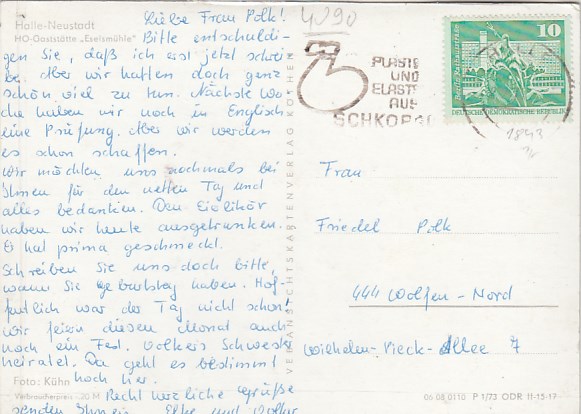 Halle-Neustadt
HO-Gaststätte „Eselsmühle"
Liebe Frau Polk!
Bitte entschuldi-
gen Sie, daß ich erst jetzt schrei
be. Aber wir hatten doch ganz
schön viel zu tun. Nächste Wo
che haben wir noch in Englisch
eine Prüfung. Aber wir werden
es schon schaffen.
Wir möchten uns nochmals bei
Ihnen für den netten Tag und
alles bedanken. Den Eierlikör
haben wir heute ausgetrunken.
Er hat prima geschmeckt.
Schreiben Sie uns doch bitte,
wann Sie Geburtstag haben. Hof-
fentlich war der Tag nicht schon!
Wir feiern diesen Monat auch
noch ein Fest. Volkers Schweste
heiratet. Da geht es bestimmt
hoch her.
Recht herzliche Grüße
senden Ihnen Elke und Volker
Foto: Kühn
Verbraucherpreis -,20 M
VERLAG KÖTHEN
4090
PLASTE
UND
ELASTE
AUS
SCHKOPA
10
DEUTSCHE DEMOKRATISCHE REPUBLIK
1843
Frau
Friedel Polk
444 Wolfen-Nord
Wilhelm-Pieck-Allee 7
06 08 0110 P 1/73 ODR II-15-17